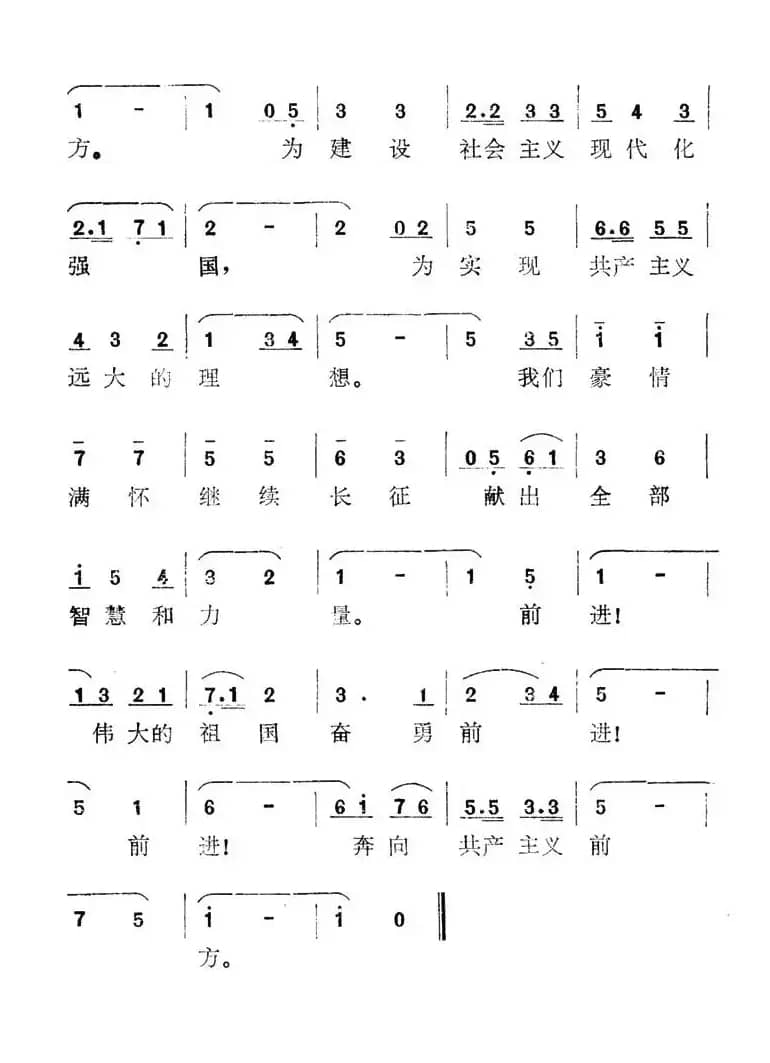 1 - | 1 0 5 | 3 3 | 2.2 3 3 | 5 4 3 |
方。 为 建 设 社会 主义 现 代 化
2.1 7 1 | 2 - | 2 0 2 | 5 5 | 6.6 5 5 |
强 国， 为 实 现 共产 主义
4 3 2 | 1 3 4 | 5 - | 5 3 5 | i i |
远 大 的 理 想。 我们 豪 情
7 7 | 5 5 | 6 3 | 0 5 6 1 | 3 6 |
满 怀 继 续 长 征 献 出 全 部
i 5 4 | 3 2 | 1 - | 1 5 | 1 - |
智 慧 和 力 量。 前 进！
1 3 2 1 | 7.1 2 | 3 . 1 | 2 3 4 | 5 - |
伟 大的 祖 国 奋 勇 前 进！
5 1 | 6 - | 6 i 7 6 | 5.5 3.3 | 5 - |
前 进！ 奔 向 共产 主义 前
7 5 | i - | i 0 ‖
方。